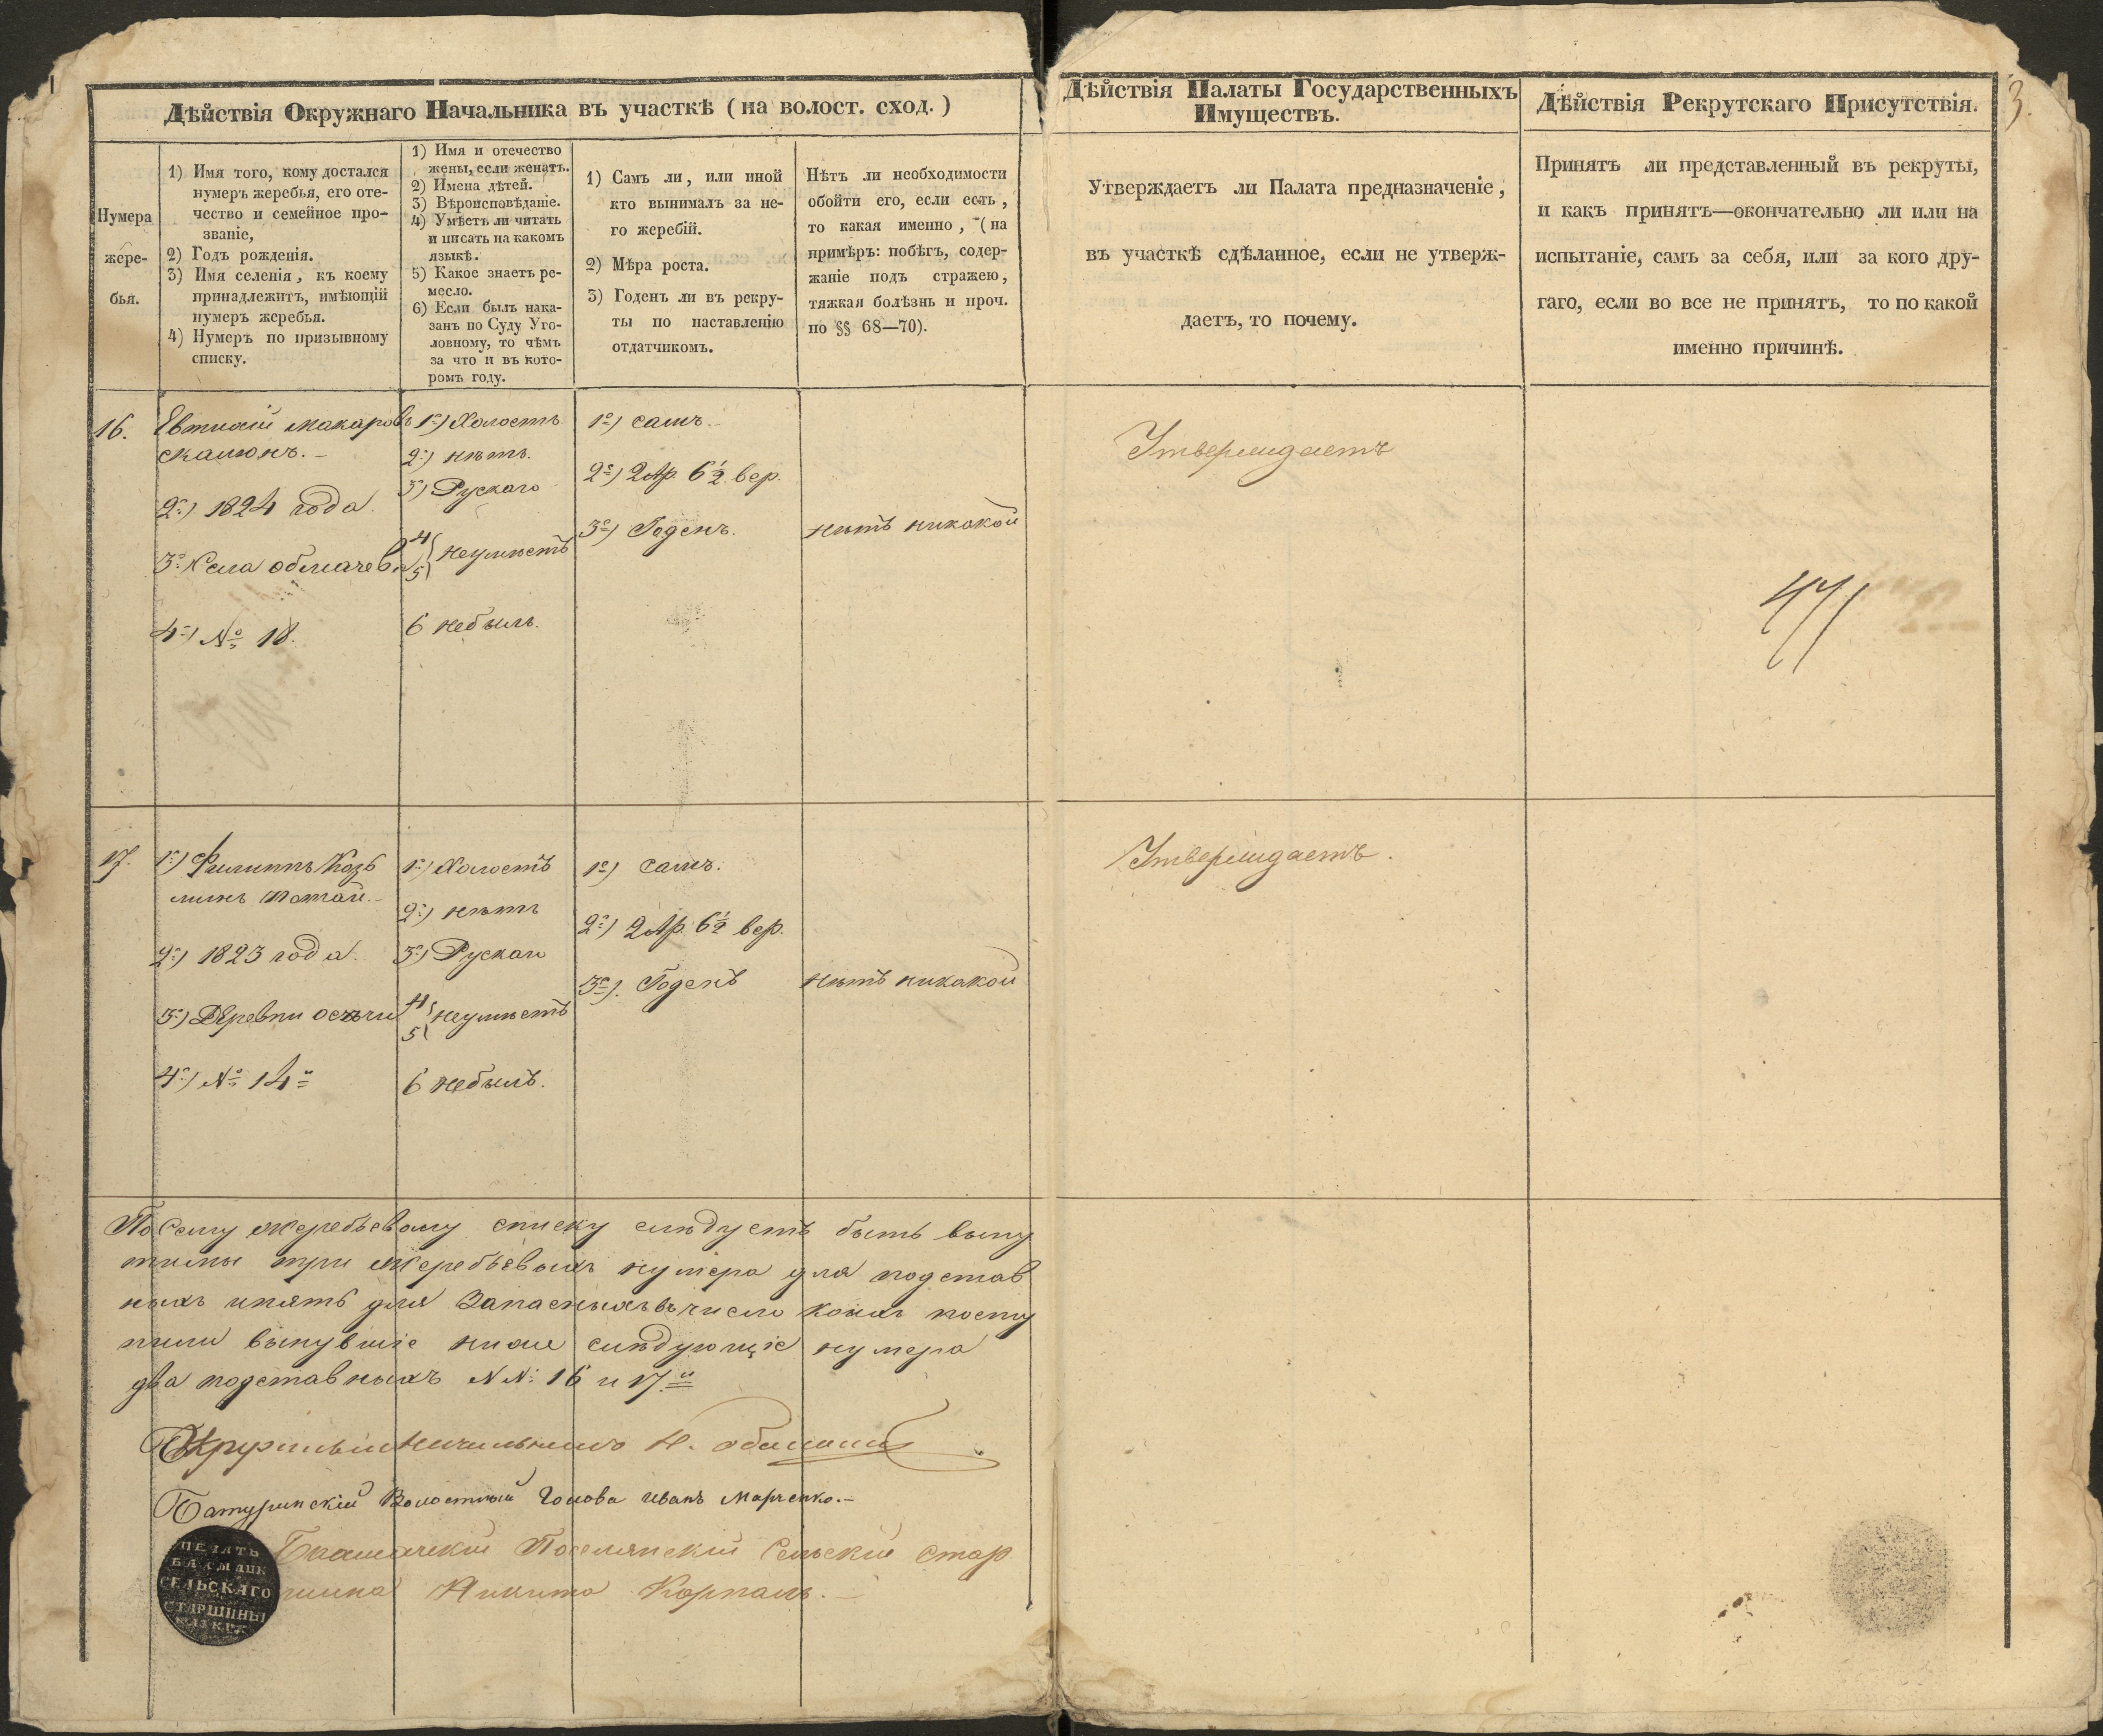 3.
Дѣйствія Окружнаго Начальника въ участкѣ (на волост. сход.)
Дѣйствія Палаты Государственныхъ
Имуществъ.
Дѣйствія Рекрутскаго Присутствія.
Нумера
жере-
бья.
1) Имя того, кому достался
нумеръ жеребья, его оте-
чество и семейное про-
званіе,
2) Годъ рожденія.
3) Имя селенія, къ коему
принадлежитъ, имѣющій
нумеръ жеребья.
4) Нумеръ по призывному
списку.
1) Имя и отечество
жены, если женатъ.
2) Имена дѣтей.
3) Вѣроисповѣданіе.
4) Умѣетъ ли читать
и писать на какомъ
языкѣ.
5) Какое знаетъ ре-
месло.
6) Если былъ нака-
занъ по Суду Уго-
ловному, то чѣмъ
за что и въ кото-
ромъ году.
1) Самъ ли, или иной
кто вынималъ за не-
го жеребій.
2) Мѣра роста.
3) Годенъ ли въ рекру-
ты по наставленію
отдатчикомъ.
Нѣтъ ли необходимости
обойти его, если есть,
то какая именно, (на
примѣръ: побѣгъ, содер-
жаніе подъ стражею,
тяжкая болѣзнь и проч.
по §§ 68—70).
Утверждаетъ ли Палата предназначеніе,
въ участкѣ сдѣланное, если не утверж-
даетъ, то почему.
Принятъ ли представленный въ рекруты,
и какъ принятъ—окончательно ли или на
испытаніе, самъ за себя, или за кого дру-
гаго, если во все не принятъ, то по какой
именно причинѣ.
16.
Евтихій Макаровъ
2) 1824 года.
3 Села Обмачева
4) № 18.
1) Холостъ
2) нѣтъ.
3) Рускаго
4
5
неумѣетъ
6 небылъ.
1) самъ.
2) 2 Ар. 6 1/2 вер.
3) Годенъ.
нѣтъ никакой
Утверждаетъ
17.
1) Филиппъ Козь
минъ
2) 1823 года.
3) Деревни
4) № 14
1) Холостъ
2) нѣтъ
3) Рускаго
4
5
неумѣетъ
6 небылъ.
1) самъ.
2) 2 Ар. 6 1/2 вер.
3) Годенъ
нѣтъ никакой
Утверждаетъ.
По сему жеребьевому списку слѣдуетъ быть выну
тыми три жеребьевыхъ нумера для подстав
ныхъ ипять для Запасныхъ въ число коихъ посту
пили вынувшіе ниже слѣдующіе нумера
два подставныхъ NN: 16 и 17.й
Окружный Начальникъ Н.
Батуринскій Волостный Голова Иванъ Марченко.
Сельскій Стар
шина Никита
ПЕЧАТЬ
СЕЛЬСКАГО
СТАРШИНЫ